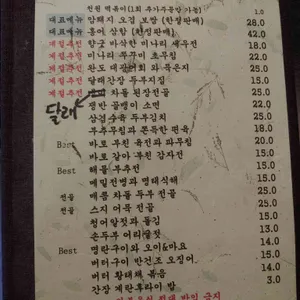 천원 떡국(1회 추가주문만 가능) 1.0
대표메뉴 암퇘지 오겹 보쌈 (한정판매) 28.0
대표메뉴 홍어 삼합 (한정판매) 42.0
계절추천 향긋 바삭한 미나리 새우전 18.0
계절추천 미나리 쭈꾸미 초무침 22.0
계절추천 완도 대광어회 와 묵은지 25.0
계절추천 달래간장 두부지짐 15.0
계절추천 차돌 된장전골 25.0
달래
쟁반 골뱅이 소면 22.0
삼겹수육 두부김치 25.0
부추무침과 쫀득한 편육 18.0
Best 바로 부친 육전과 파무침 20.0
바로 갈아 부친 감자전 15.0
Best 해물 부추전 15.0
메밀전병과 명태식해 15.0
전골 매콤 차돌 두부 전골 25.0
전골 스지 어묵 전골 25.0
청어알젓과 돌김 15.0
손두부 어리젓 14.0
Best 명란구이와 오이&마요 15.0
버터구이 반건조 오징어 15.0
버터 황태채 볶음 14.0
간장 계란후라이 밥 3.0